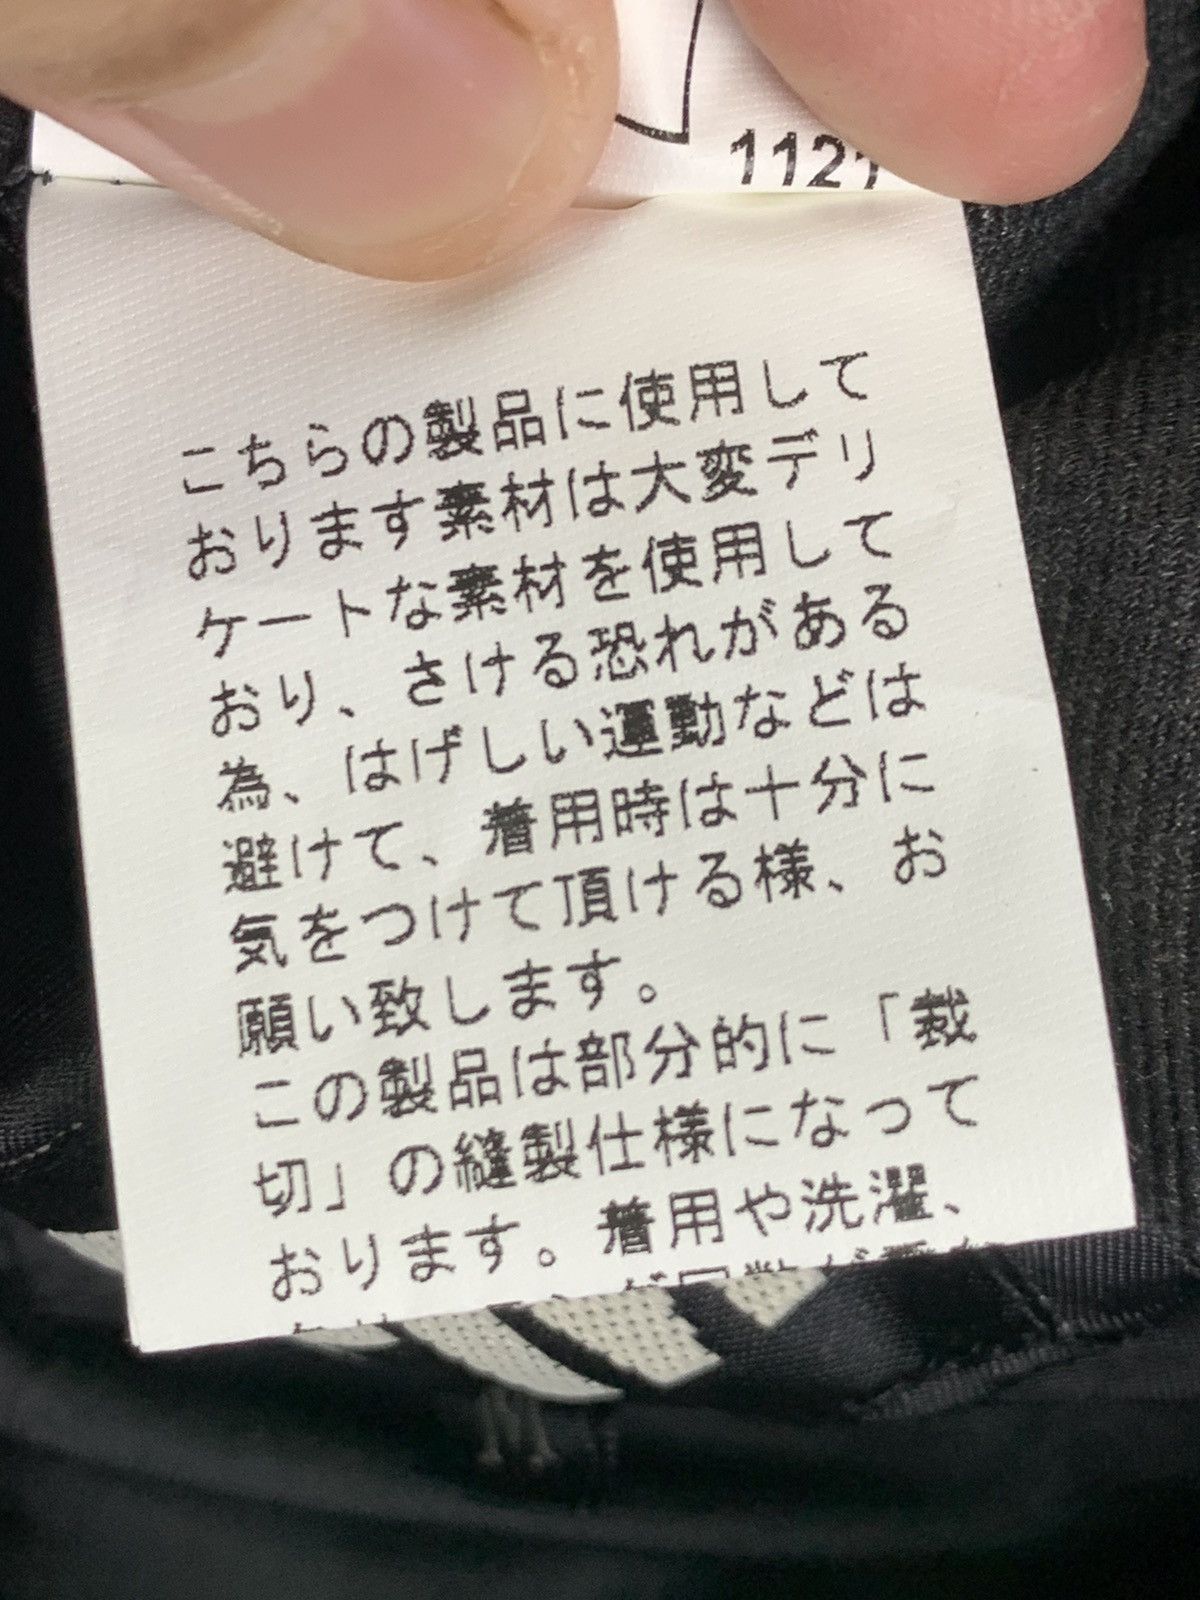 1121
こちらの製品に使用して
おります素材は大変デリ
ケートな素材を使用して
おり、さける恐れがある
為、はげしい運動などは
避けて、着用時は十分に
気をつけて頂ける様、お
願い致します。
この製品は部分的に「裁
切」の縫製仕様になって
おります。着用や洗濯、